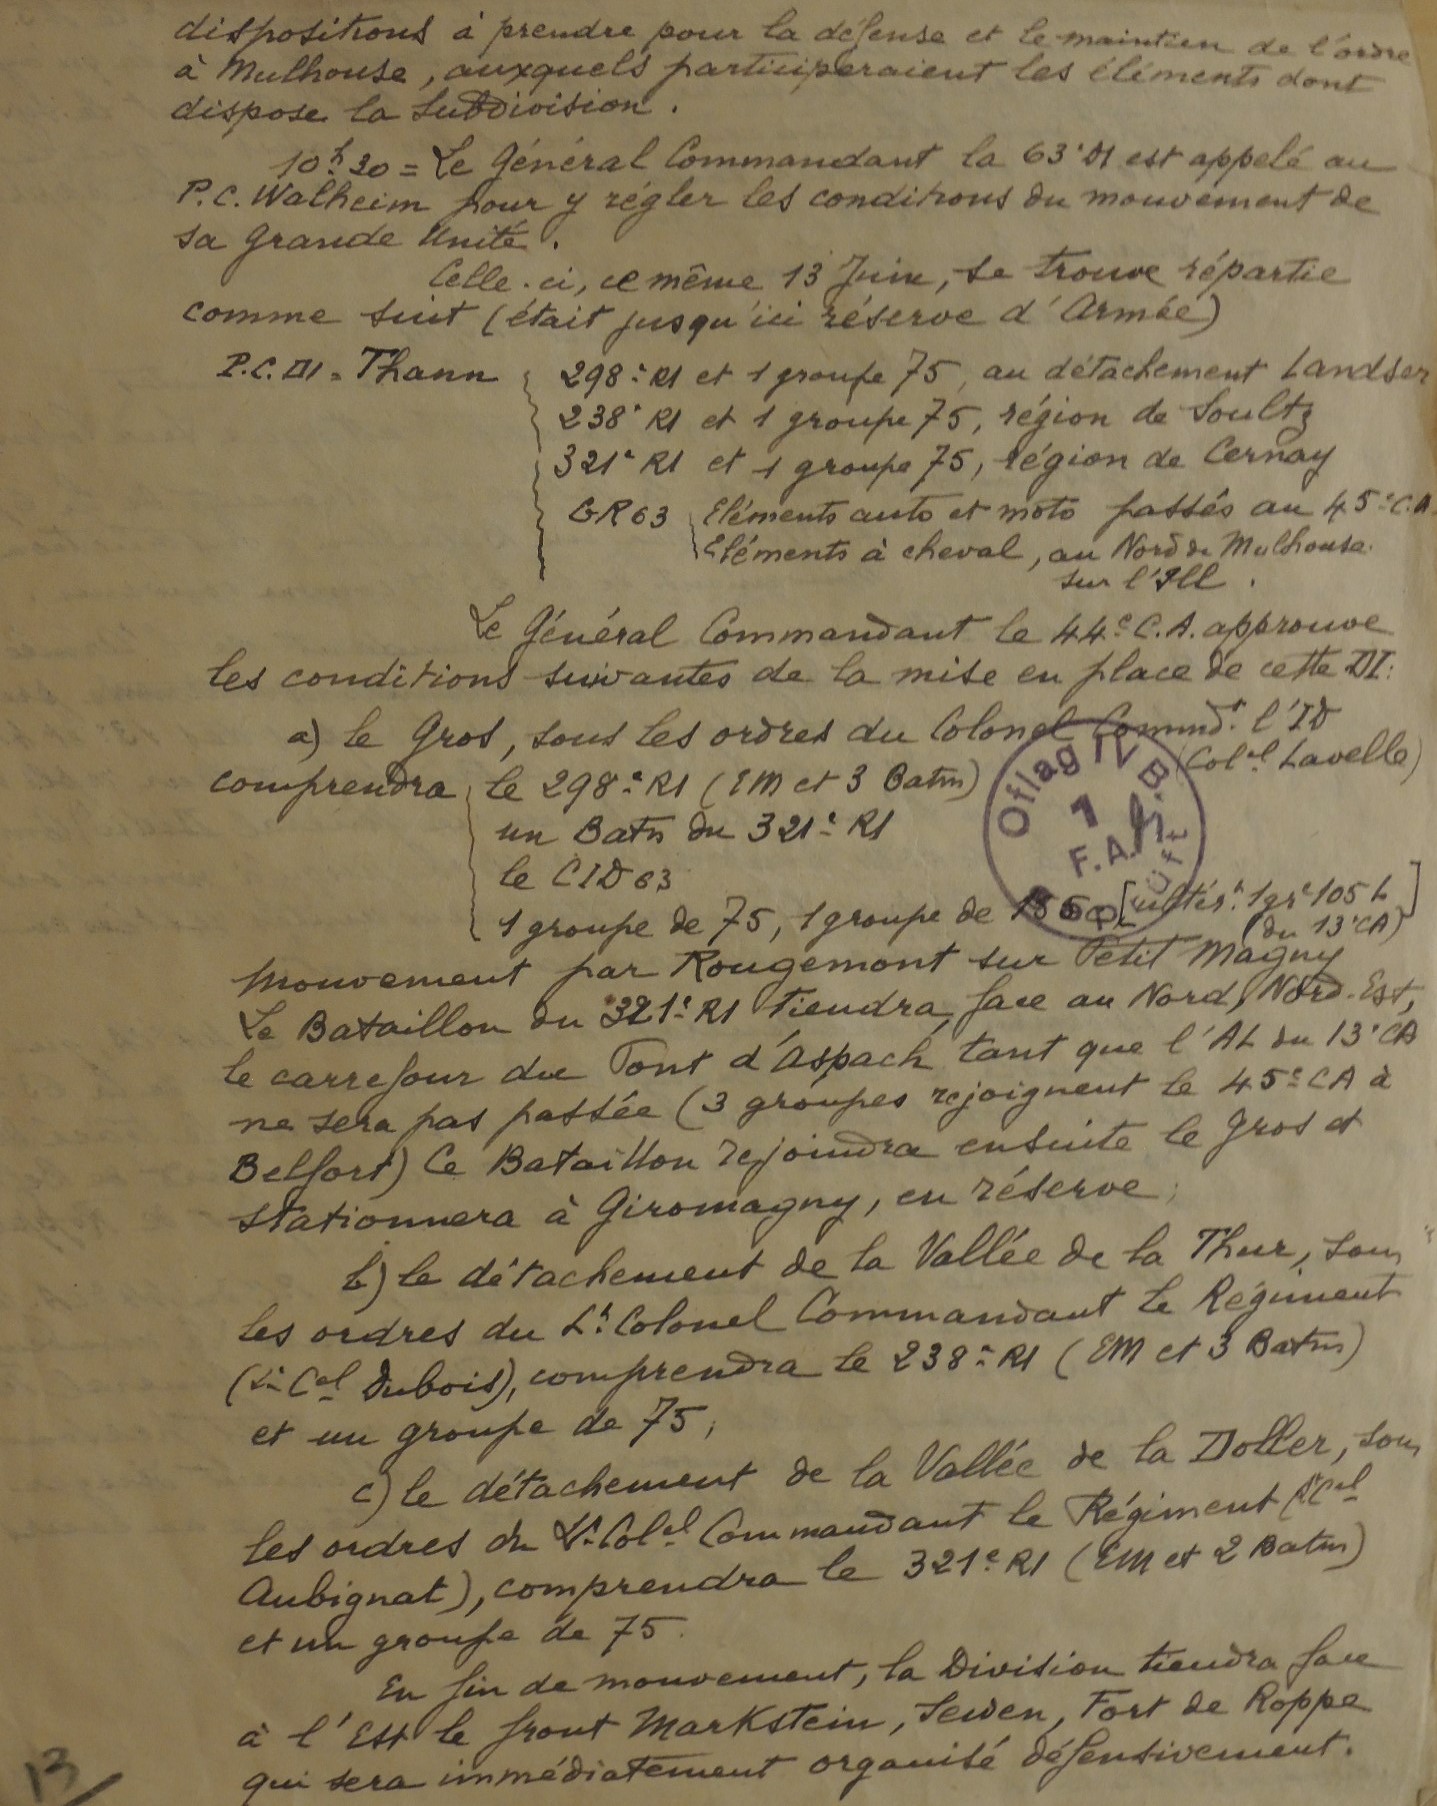 dispositions à prendre pour la défense et le maintien de l'ordre
à Mulhouse, auxquels participeraient les éléments dont
dispose la Subdivision.
10h30 = Le Général Commandant la 63e DI est appelé au
P.C. Walheim pour y régler les conditions du mouvement de
sa Grande Unité.
Celle-ci, ce même 13 Juin, se trouve répartie
comme suit (était jusqu'ici réserve d'Armée)
P.C. DI. Thann
298e RI et 1 groupe 75, au détachement Landser
238e RI et 1 groupe 75, région de Soultz
321e RI et 1 groupe 75, région de Cernay
GR 63
Eléments auto et moto passés au 45e C.A.
Eléments à cheval, au Nord de Mulhouse
sur l'Ill.
Le Général Commandant le 44e C.A. approuve
les conditions suivantes de la mise en place de cette DI:
a) le Gros, sous les ordres du Colonel Commdt l'ID
(Colel Lavelle)
comprendra
le 298e RI (EM et 3 Batns)
un Batn du 321e RI
le CID 63
1 groupe de 75, 1 groupe de 155 [ultért 1 gre 105 L
(du 13e CA)]
Oflag IV B.
F.A.
Geprüft
Mouvement par Rougemont sur Petit Magny
Le Bataillon du 321e RI tiendra, face au Nord, Nord-Est,
le carrefour du Pont d'Aspach tant que l'AL du 13e CA
ne sera pas passée (3 groupes rejoignent le 45e CA à
Belfort) Ce Bataillon rejoindra ensuite le Gros et
stationnera à Giromagny, en réserve;
b) le détachement de la Vallée de la Thur, sous
les ordres du Lt Colonel Commandant le Régiment
(Lt Cel Dubois), comprendra le 238e RI (EM et 3 Batns)
et un groupe de 75;
c) le détachement de la Vallée de la Doller, sous
les ordres du Lt Colel Commandant le Régiment (Lt Cel
Aubignat), comprendra le 321e RI (EM et 2 Batns)
et un groupe de 75.
En fin de mouvement, la Division tiendra face
à l'Est le front Markstein, Sewen, Fort de Roppe
qui sera immédiatement organisé défensivement.
13